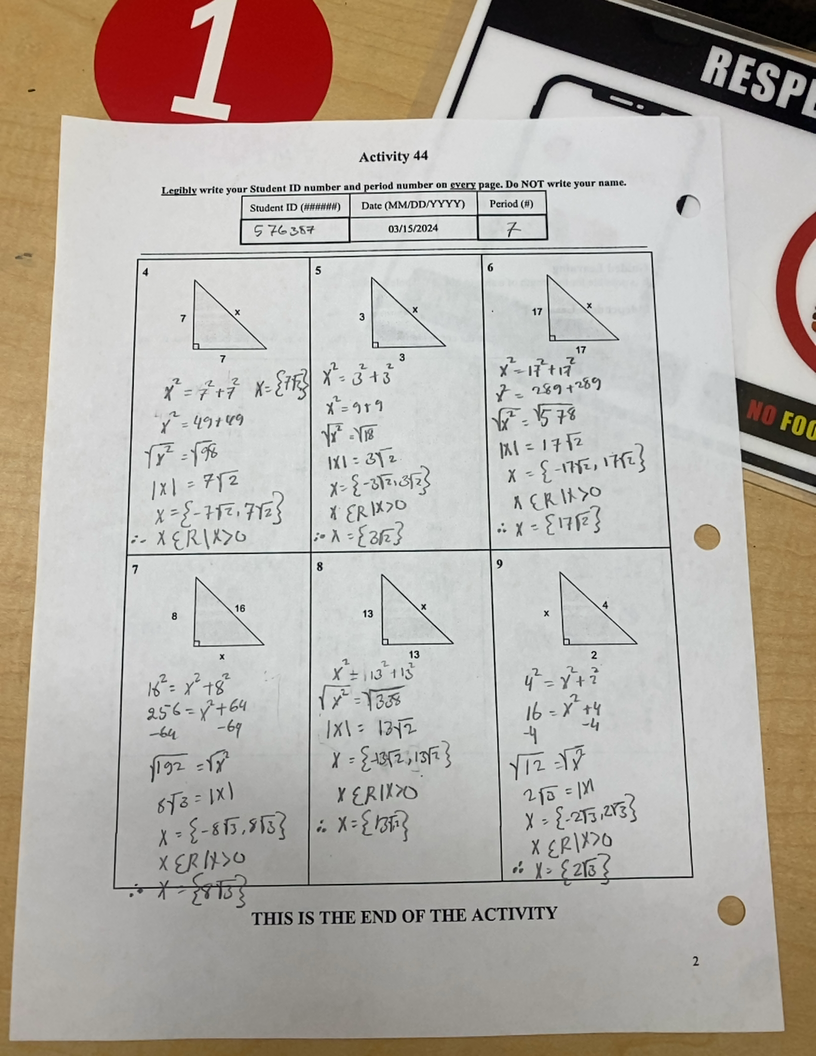 1
RESPE
NO FOO
Activity 44
Legibly write your Student ID number and period number on every page. Do NOT write your name.
Student ID (######) Date (MM/DD/YYYY) Period (#)
576387 03/15/2024 7
4
7
x
7
x² = 7² + 7² x = {7√2}
x² = 49 + 49
√x² = √98
|x| = 7√2
x = {-7√2, 7√2}
∴ x ∈ R | x > 0
5
3
x
3
x² = 3² + 3²
x² = 9 + 9
√x² = √18
|x| = 3√2
x = {-3√2, 3√2}
x ∈ R | x > 0
∴ x = {3√2}
6
17
x
17
x² = 17² + 17²
x² = 289 + 289
√x² = √578
|x| = 17√2
x = {-17√2, 17√2}
x ∈ R | x > 0
∴ x = {17√2}
7
8
16
x
16² = x² + 8²
256 = x² + 64
-64 -64
√192 = √x²
8√3 = |x|
x = {-8√3, 8√3}
x ∈ R | x > 0
∴ x = {8√3}
8
13
x
13
x² = 13² + 13²
√x² = √338
|x| = 13√2
x = {-13√2, 13√2}
x ∈ R | x > 0
∴ x = {13√2}
9
x
4
2
4² = x² + 2²
16 = x² + 4
-4 -4
√12 = √x²
2√3 = |x|
x = {-2√3, 2√3}
x ∈ R | x > 0
∴ x = {2√3}
THIS IS THE END OF THE ACTIVITY
2